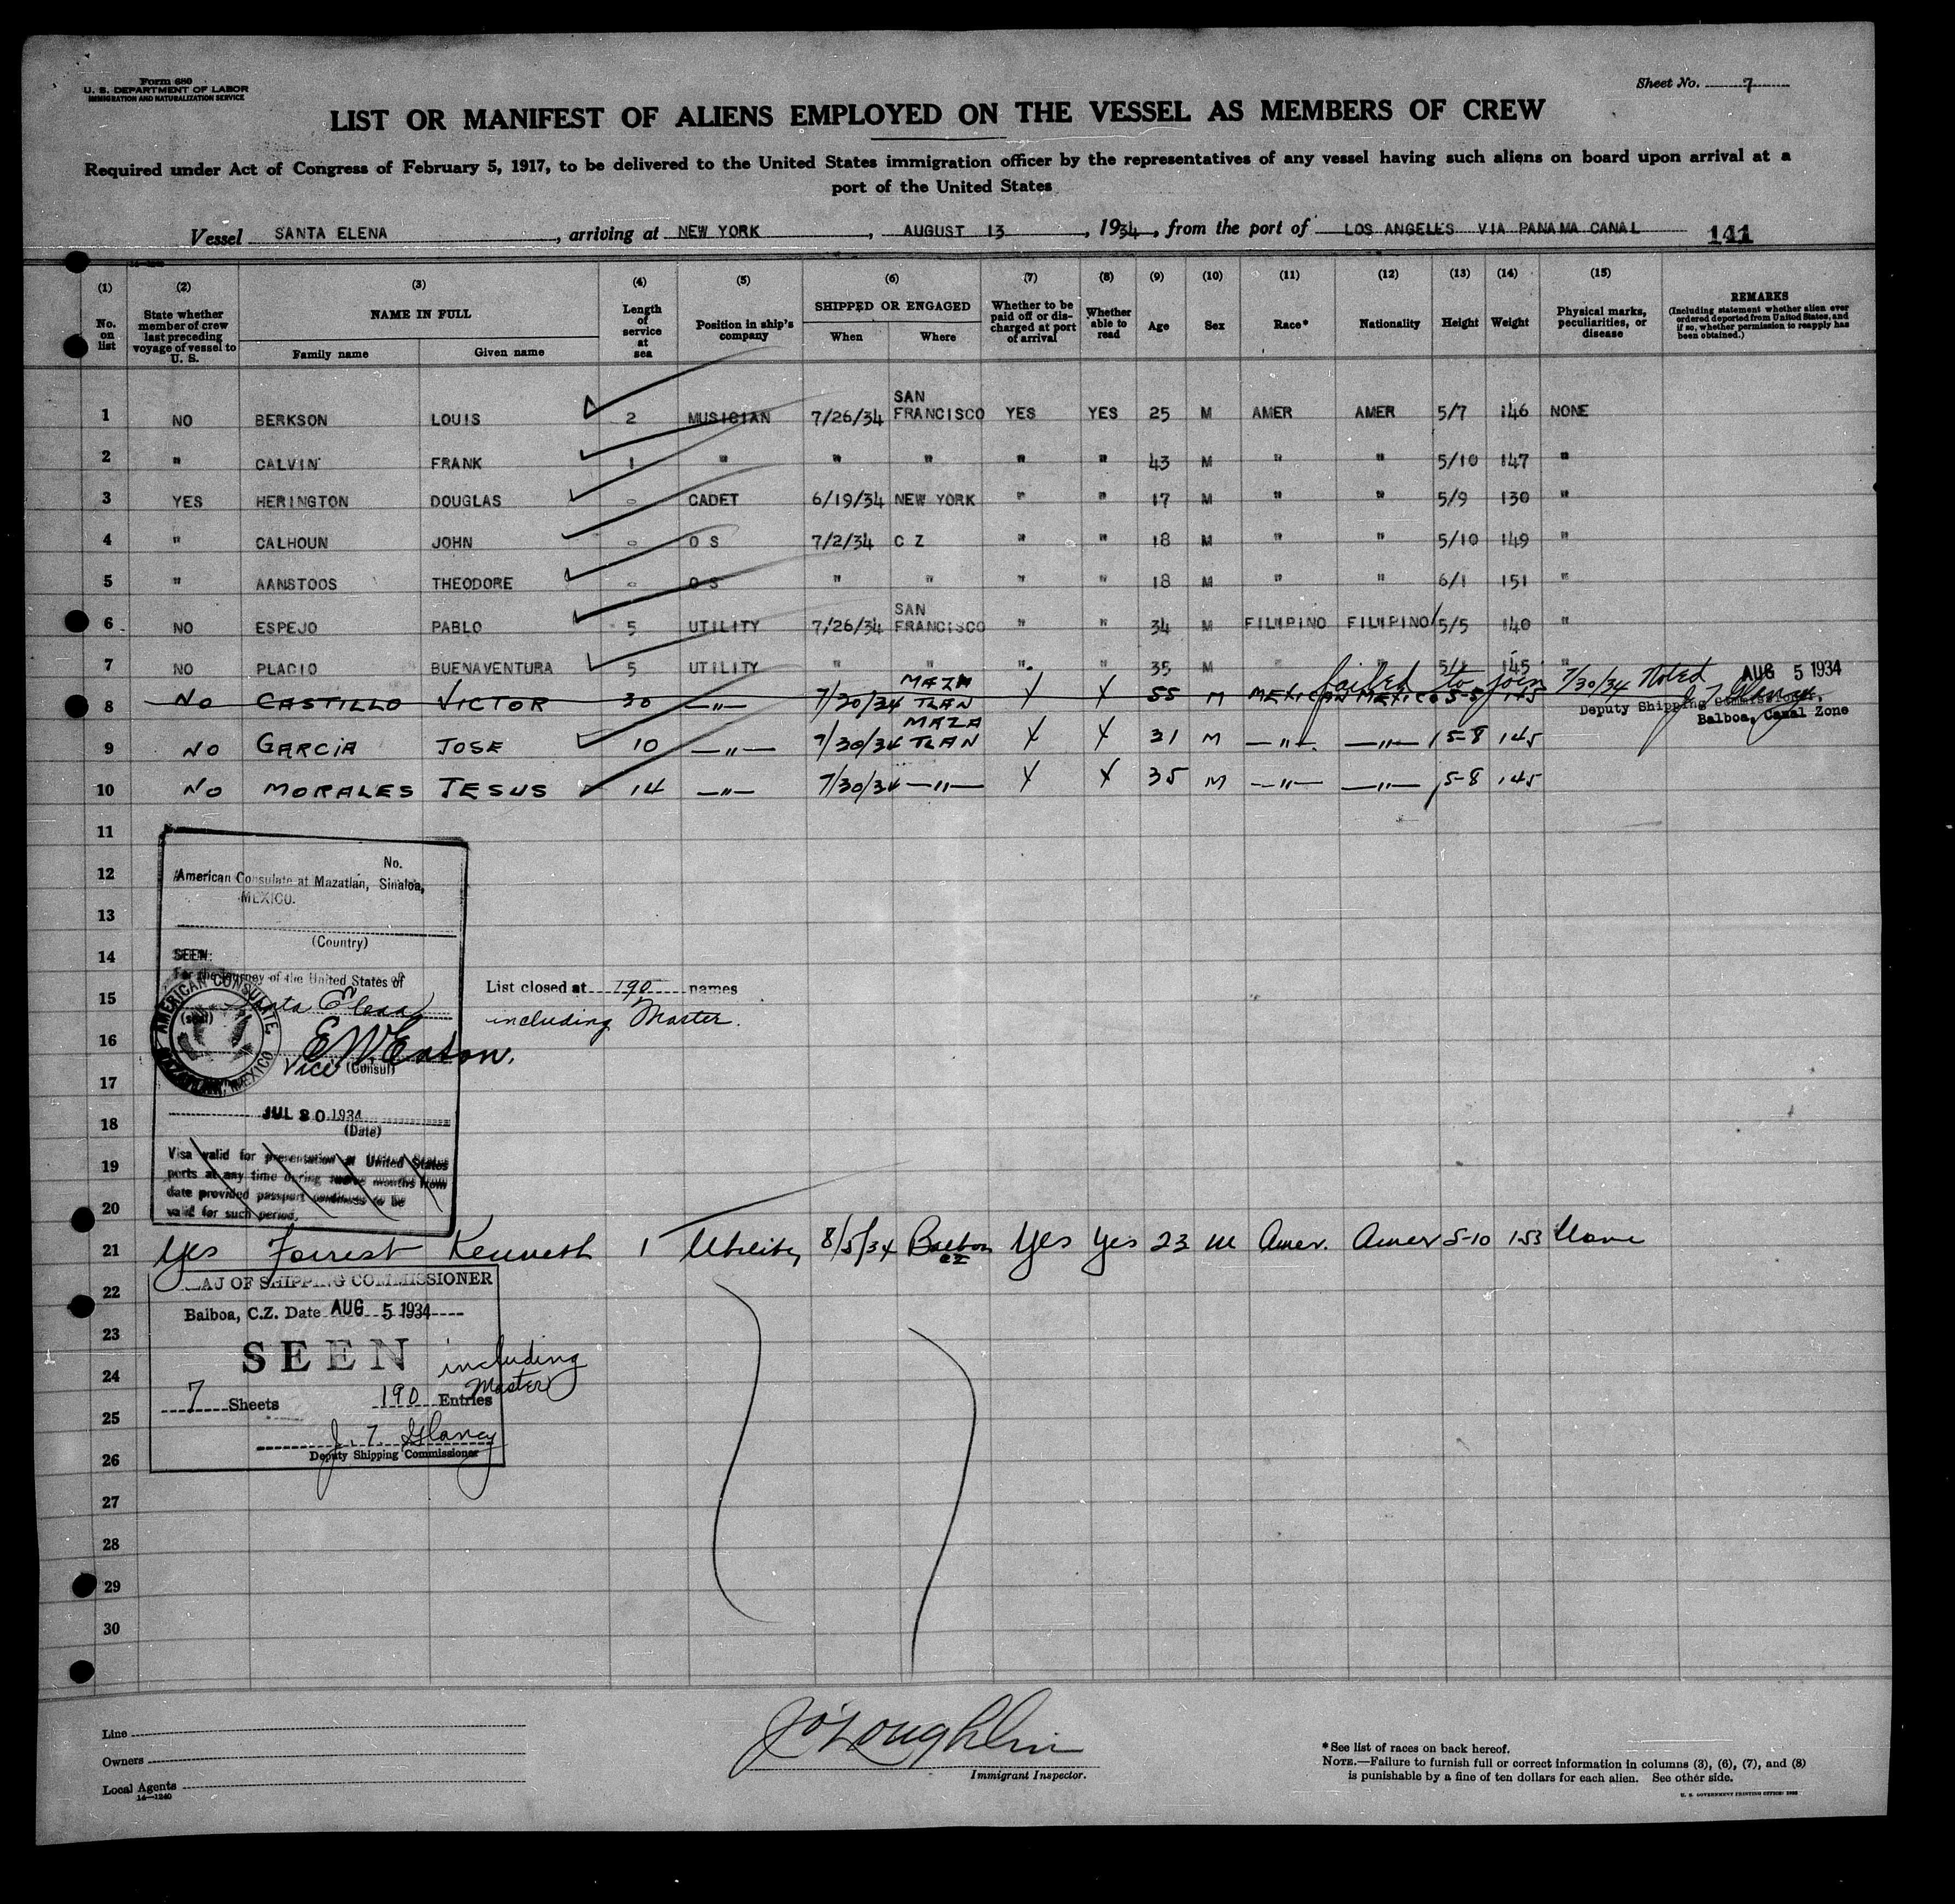 Form 680
U. S. DEPARTMENT OF LABOR
IMMIGRATION AND NATURALIZATION SERVICE
Sheet No. 7
LIST OR MANIFEST OF ALIENS EMPLOYED ON THE VESSEL AS MEMBERS OF CREW
Required under Act of Congress of February 5, 1917, to be delivered to the United States immigration officer by the representatives of any vessel having such aliens on board upon arrival at a
port of the United States
Vessel SANTA ELENA, arriving at NEW YORK, AUGUST 13, 1934, from the port of LOS ANGELES VIA PANAMA CANAL 141
(1) (2) (3) (4) (5) (6) (7) (8) (9) (10) (11) (12) (13) (14) (15)
No. on list
State whether member of crew last preceding voyage of vessel to U. S.
NAME IN FULL
Family name Given name
Length of service at sea
Position in ship's company
SHIPPED OR ENGAGED
When Where
Whether to be paid off or discharged at port of arrival
Whether able to read
Age Sex Race* Nationality Height Weight
Physical marks, peculiarities, or disease
REMARKS
(Including statement whether alien ever ordered deported from United States, and if so, whether permission to reapply has been obtained.)
1 NO BERKSON LOUIS 2 MUSICIAN 7/26/34 SAN FRANCISCO YES YES 25 M AMER AMER 5/7 146 NONE
2 " CALVIN FRANK 1 " " " " " 43 M " " 5/10 147 "
3 YES HERINGTON DOUGLAS 0 CADET 6/19/34 NEW YORK " " 17 M " " 5/9 130 "
4 " CALHOUN JOHN 0 O S 7/2/34 C Z " " 18 M " " 5/10 149 "
5 " AANSTOOS THEODORE 0 O S " " " " 18 M " " 6/1 151 "
6 NO ESPEJO PABLO 5 UTILITY 7/26/34 SAN FRANCISCO " " 34 M FILIPINO FILIPINO 5/5 140 "
7 NO PLACIO BUENAVENTURA 5 UTILITY " " " " 35 M " " 145 "
failed to join 7/30/34 Noted AUG 5 1934
8 No CASTILLO VICTOR 30 —"— 7/30/34 MAZATLAN X X 55 M MEXICAN MEXICO 5-5 145
Deputy Shipping Commissioner.
Balboa, Canal Zone
9 NO GARCIA JOSE 10 —"— 7/30/34 MAZATLAN X X 31 M —"— —"— 5-8 145
10 NO MORALES JESUS 14 —"— 7/30/34 —"— X X 35 M —"— —"— 5-8 145
11
12
13
14
15
16
17
18
19
20
No.
American Consulate at Mazatlan, Sinaloa,
MEXICO.
(Country)
SEEN:
For the journey of the United States of
Santa Elena
(seal)
AMERICAN CONSULATE, MAZATLAN, MEXICO
E W Eaton.
Vice (Consul)
JUL 30 1934
(Date)
Visa valid for presentation at United States
ports at any time during twelve months from
date provided passport continues to be
valid for such period.
List closed at 190 names
including Master.
21 Yes Forrest Kenneth 1 Utility 8/5/34 Balboa CZ Yes Yes 23 M Amer. Amer 5-10 153 None
22
23
24
25
26
27
28
29
30
OF SHIPPING COMMISSIONER
Balboa, C.Z. Date AUG 5 1934
SEEN including
Master
7 Sheets 190 Entries
J. T. Glancy
Deputy Shipping Commissioner
Line
Owners
Local Agents
14—1240
J O'Loughlin
Immigrant Inspector.
*See list of races on back hereof.
NOTE.—Failure to furnish full or correct information in columns (3), (6), (7), and (8)
is punishable by a fine of ten dollars for each alien. See other side.
U. S. GOVERNMENT PRINTING OFFICE: